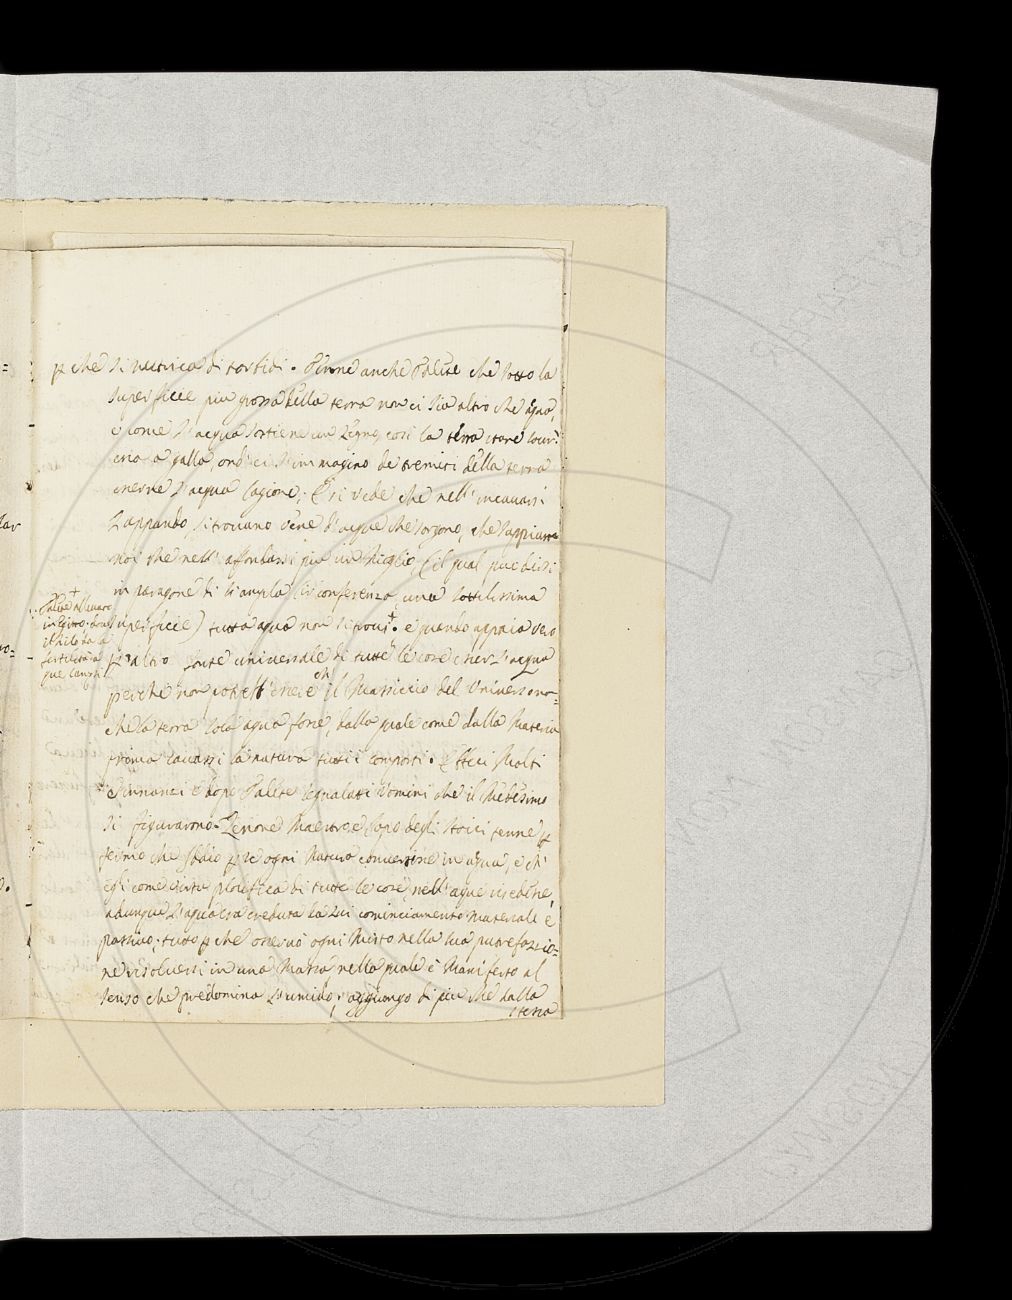 che si nutrica di torbidi. Tenne anche Talete che sotto la
superficie più grossa della terra non ci sia altro che aqua,
e come l'acqua sostiene un legno, così la terra stare
a galla, ond'ei s'immagino de tremiti della terra
esserne l'acqua cagione; e si vede che nell'incavarsi
zappando, si trovano vene d'acque che sorgono, che sappiamo
noi che nell'affondarsi più un Miglio, (il qual può dirsi
in paragone di sì ampla circonferenza, una sottilissima
superficie) tutta aqua non si trovi + . e quando appaia vero
+
Talete
in Egitto dove
il Nilo da la
fertilità
l'altro fonte universale di tutte le cose esser l'acqua
perche non potett'essere ch' il del Universo no=
che la terra sola aqua fosse, dalla quale come dalla Materia
prima cavassi la natura tutti i composti. Molti
e innanzi e dopo Talete segnalati Uomini che il Medesimo
si figurarono. Zenone Maestro e Capo degli Stoici tenne p
fermo che Iddio ogni Natura convertine in aqua, e ch'
egli come virtù prolifica di tutte le cose, nell'aque risedesse,
adunque l'aqua era creduta da lui cominciamento Materiale e
passivo; tutto che osservò ogni Misto nella sua putrefazzio=
ne risolversi in una Massa nella quale è Manifesto al
senso che predomina l'umido; aggiungo di più che dalla
stessa